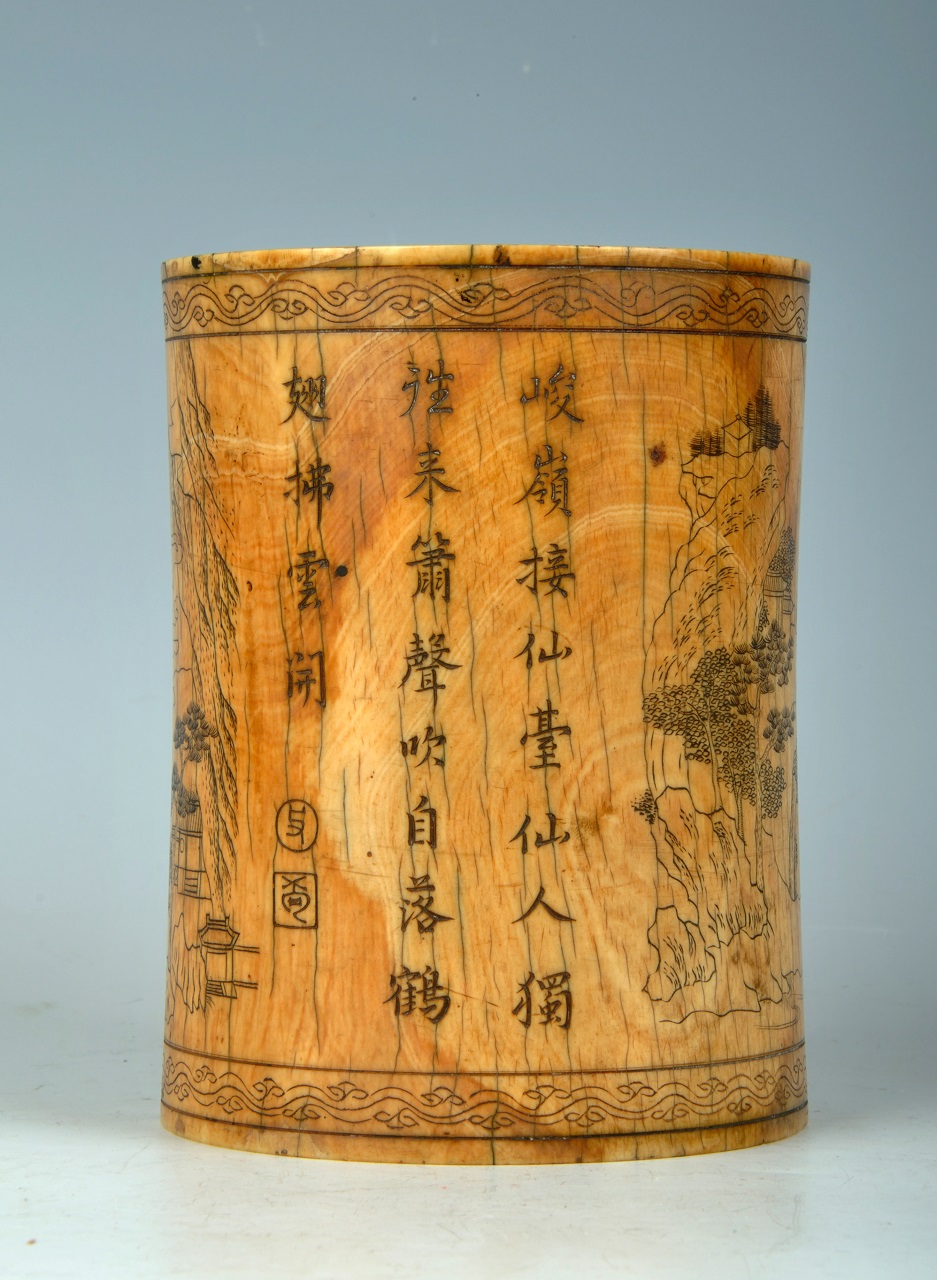 峻嶺接仙臺仙人獨
往来簫聲吹自落鶴
翅拂雲開